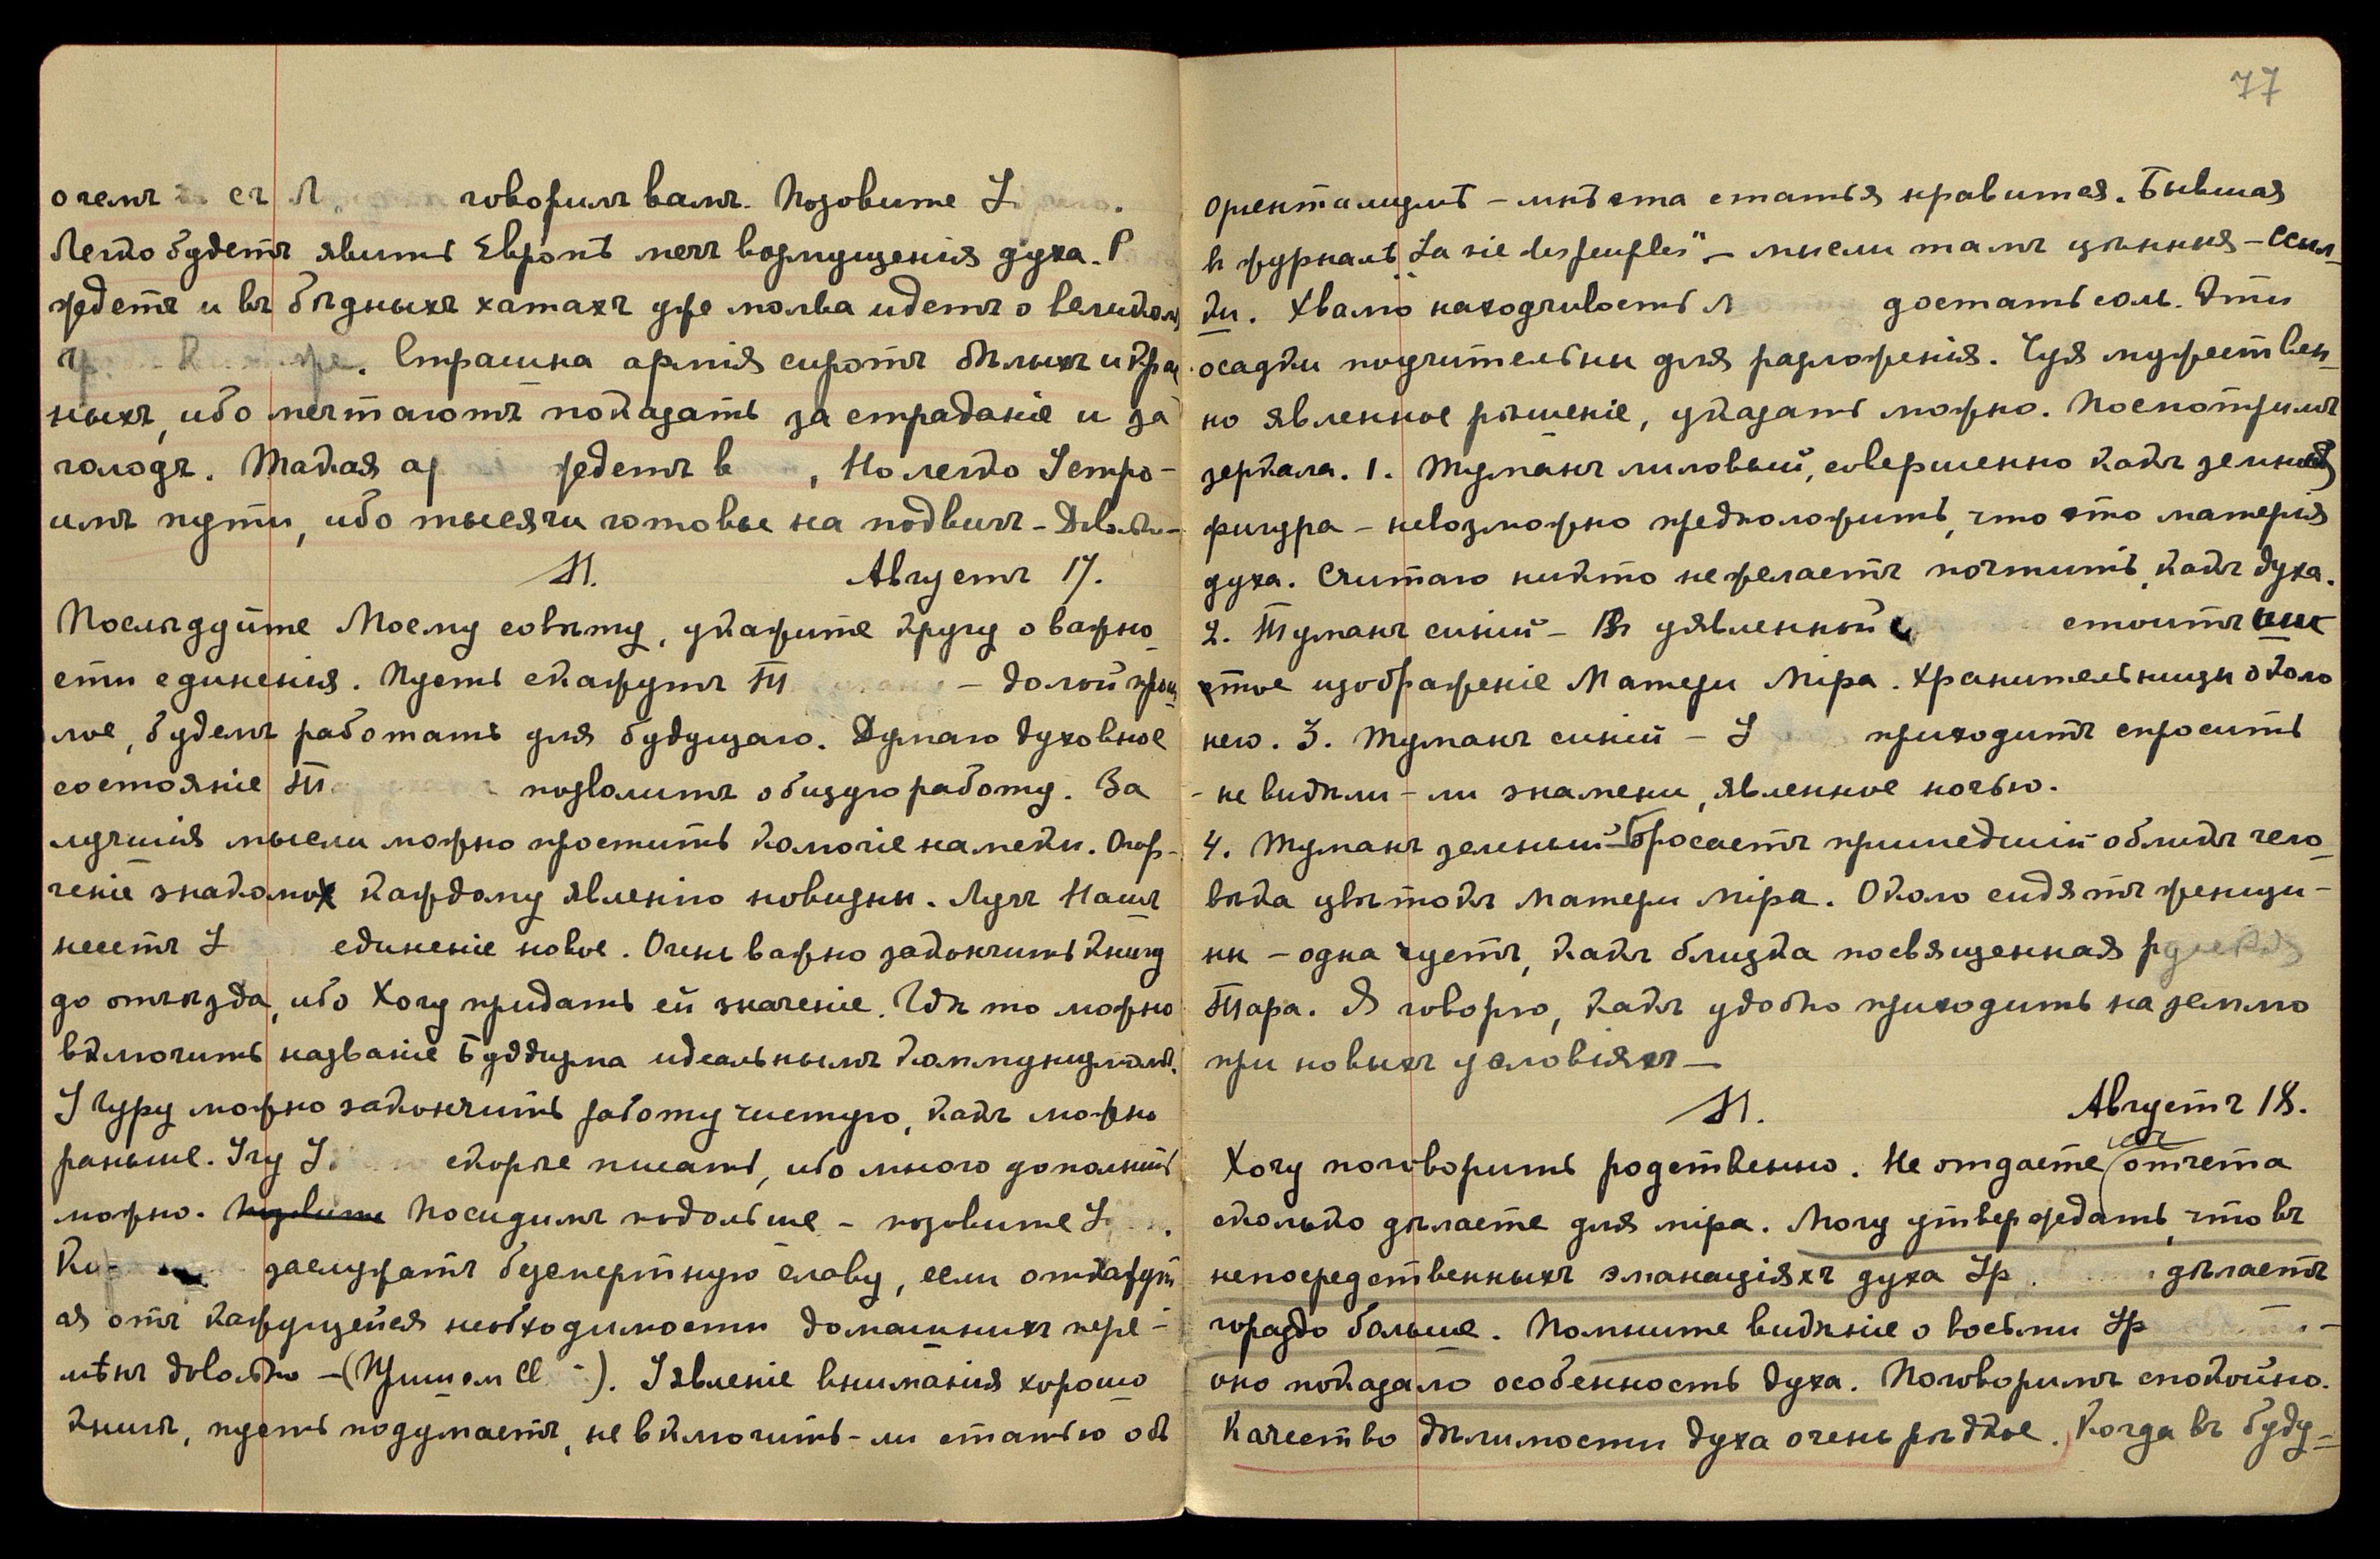 о чемъ съ Л говорилъ вамъ. Позовите У
Легко будетъ явить Европѣ мечъ возмущенія духа. Р
ждетъ и въ бѣдныхъ хатахъ уже молва идетъ о великомъ
. Страшна армія сиротъ бѣлыхъ и крас
ныхъ, ибо мечтаютъ показать за страданіе и за
голодъ. Такая ар ждетъ в , Но легко Устро-
имъ пути, ибо тысячи готовы на подвигъ - Довольно-
М. Августъ 17.
Послѣдуйте Моему совѣту, укажите кругу о важно
сти единенія. Пусть скажутъ Т - долой прош
лое, будемъ работать для будущаго. Думаю духовное
состояніе Т позволитъ общую работу. За
лучшія мысли можно простить колючіе намеки. Огор-
ченіе знакомо каждому явленію новизны. Лучъ Нашъ
несетъ У единеніе новое. Очень важно закончить книгу
до отъѣзда, ибо Хочу придать ей значеніе. Гдѣ то можно
включить названіе Буддизма идеальнымъ коммунизмомъ.
У Гуру можно закончить работу чистую, какъ можно
раньше. Учу У скорѣе писать, ибо много дополнить
можно. Позвите Посидимъ подольше - позовите У
заслужатъ безсмертную славу, если откажут
ся отъ кажущейся необходимости домашнихъ пере-
мѣнъ довольно - ( ). Уявленіе вниманія хорошо
книгѣ, пусть подумаетъ, не включить-ли статью объ
77
Оріентализмѣ - мнѣ эта статья нравится. Бывшая
въ журналѣ "La vie des peuples" - мысли тамъ цѣнныя - Ссыл
ки. Хвалю находчивость Л достать соль. Эти
осадки поучительны для разложенія. Чуя мужествен
но явленное рѣшеніе, указать можно. Посмотримъ
зеркала. 1. Туманъ лиловый, совершенно какъ земная
фигура - невозможно предположить, что это матерія
духа. Считаю никто не желаетъ почтить, какъ духа.
2. Туманъ синій - Въ уявленной стоитъ
изображеніе Матери Міра. Хранительницы около
него. 3. Туманъ синій - У приходитъ спросить
- не видѣли-ли знамени, явленное ночью.
4. Туманъ зеленый - Бросаетъ пришедшій обликъ чело
вѣка цвѣтокъ Матери Міра. Около сидятъ женщи-
ны - одна чуетъ, какъ близка посвященная русская
Тара. Я говорю, какъ удобно приходить на землю
при новыхъ условіяхъ —
М. Августъ 18.
Хочу поговорить родственно. Не отдаете себѣ отчета
сколько дѣлаете для міра. Могу утверждать, что въ
непосредственныхъ эманаціяхъ духа Ур дѣлаетъ
гораздо больше. Помните видѣніе о восьми Ур -
оно показало особенность духа. Поговоримъ спокойно.
Качество дѣлимости духа очень рѣдкое. Когда въ буду-